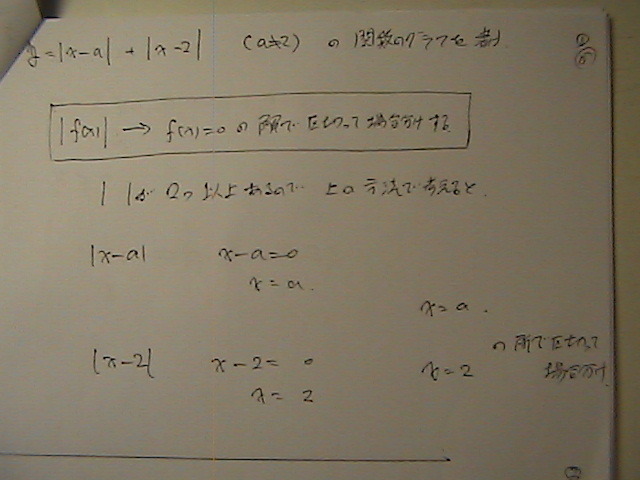 y=|x-a| + |x-2| (a≠2) の 関数のグラフを書け
|f(x)| → f(x)=0 の 所で 区切って 場合分けする.
| |が 2つ以上あるので 上の方法で考えると.
|x-a| x-a=0
x=a.
x=a.
の所で区切って
|x-2| x-2=0 x=2 場合分け
x=2